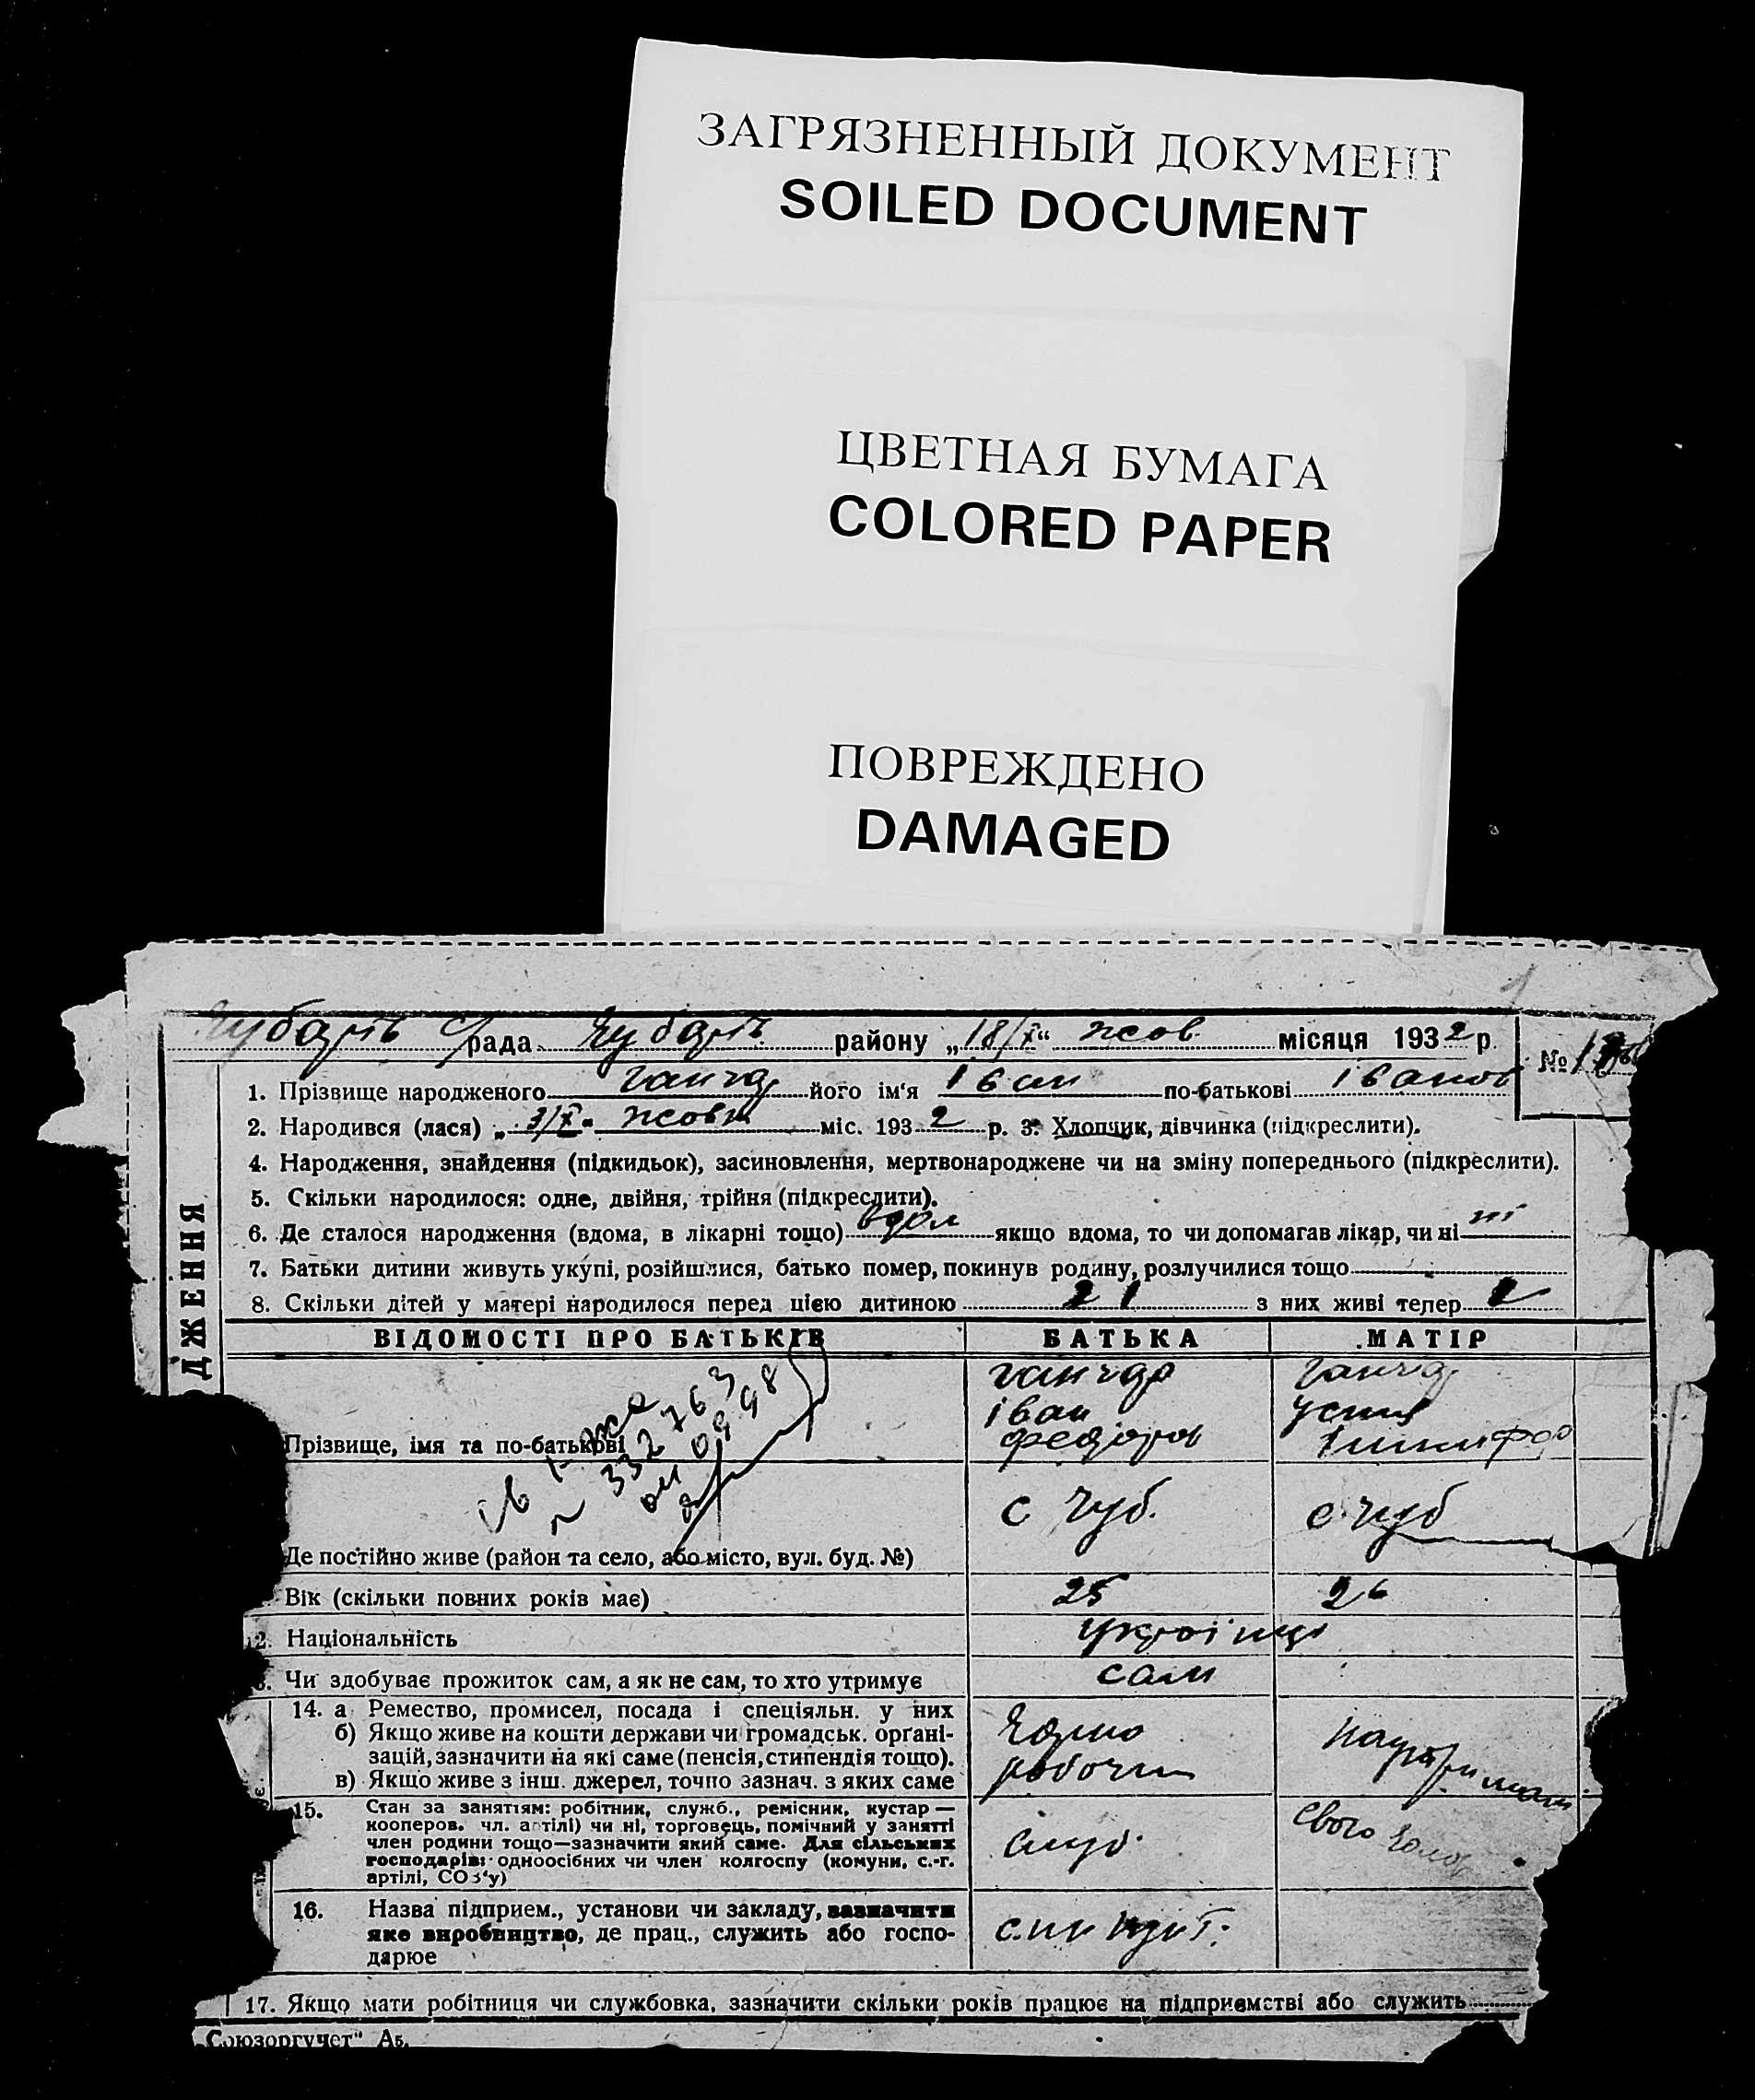 ЗАГРЯЗНЕННЫЙ ДОКУМЕНТ
SOILED DOCUMENT
ЦВЕТНАЯ БУМАГА
COLORED PAPER
ПОВРЕЖДЕНО
DAMAGED
рада району „18/X“ жов місяця 1932 р.
№
1. Прізвище народженого його ім‘я Іван по-батькові Іванов
2. Народився (лася) „3/X“ жовт міс. 1932 р. 3. Хлопчик, дівчинка (підкреслити).
4. Народження, знайдення (підкидьок), засиновлення, мертвонароджене чи на зміну попереднього (підкреслити).
5. Скільки народилося: одне, двійня, трійня (підкреслити).
6. Де сталося народження (вдома, в лікарні тощо) вдом якщо вдома, то чи допомагав лікар, чи ні ні
7. Батьки дитини живуть укупі, розійшлися, батько помер, покинув родину, розлучилися тощо
8. Скільки дітей у матері народилося перед цією дитиною з них живі тепер
ДЖЕННЯ
ВІДОМОСТІ ПРО БАТЬКІВ БАТЬКА МАТІР
Іван
Прізвище, імя та по-батькові Федоров
332763
с Чуб. с Чуб
Де постійно живе (район та село, або місто, вул. буд. №)
Вік (скільки повних років має) 25 26
12. Національність українці
Чи здобуває прожиток сам, а як не сам, то хто утримує сам
14. а Ремество, промисел, посада і спеціяльн. у них
б) Якщо живе на кошти держави чи громадськ. органі-
зацій, зазначити на які саме (пенсія, стипендія тощо).
в) Якщо живе з інш. джерел, точно зазнач. з яких саме
робочий
15. Стан за заняттям: робітник, служб., ремісник, кустар —
кооперов. чл. артілі) чи ні, торговець, помічний у занятті
член родини тощо—зазначити який саме. Для сільських
господарів: одноосібних чи член колгоспу (комуни, с.-г.
артілі, СОЗ‘у)
служ. свого
16. Назва підприєм., установи чи закладу, зазначити
яке виробництво, де прац., служить або госпо-
дарює
17. Якщо мати робітниця чи службовка, зазначити скільки років працює на підприємстві або служить
„Союзоргучет“ Аб.